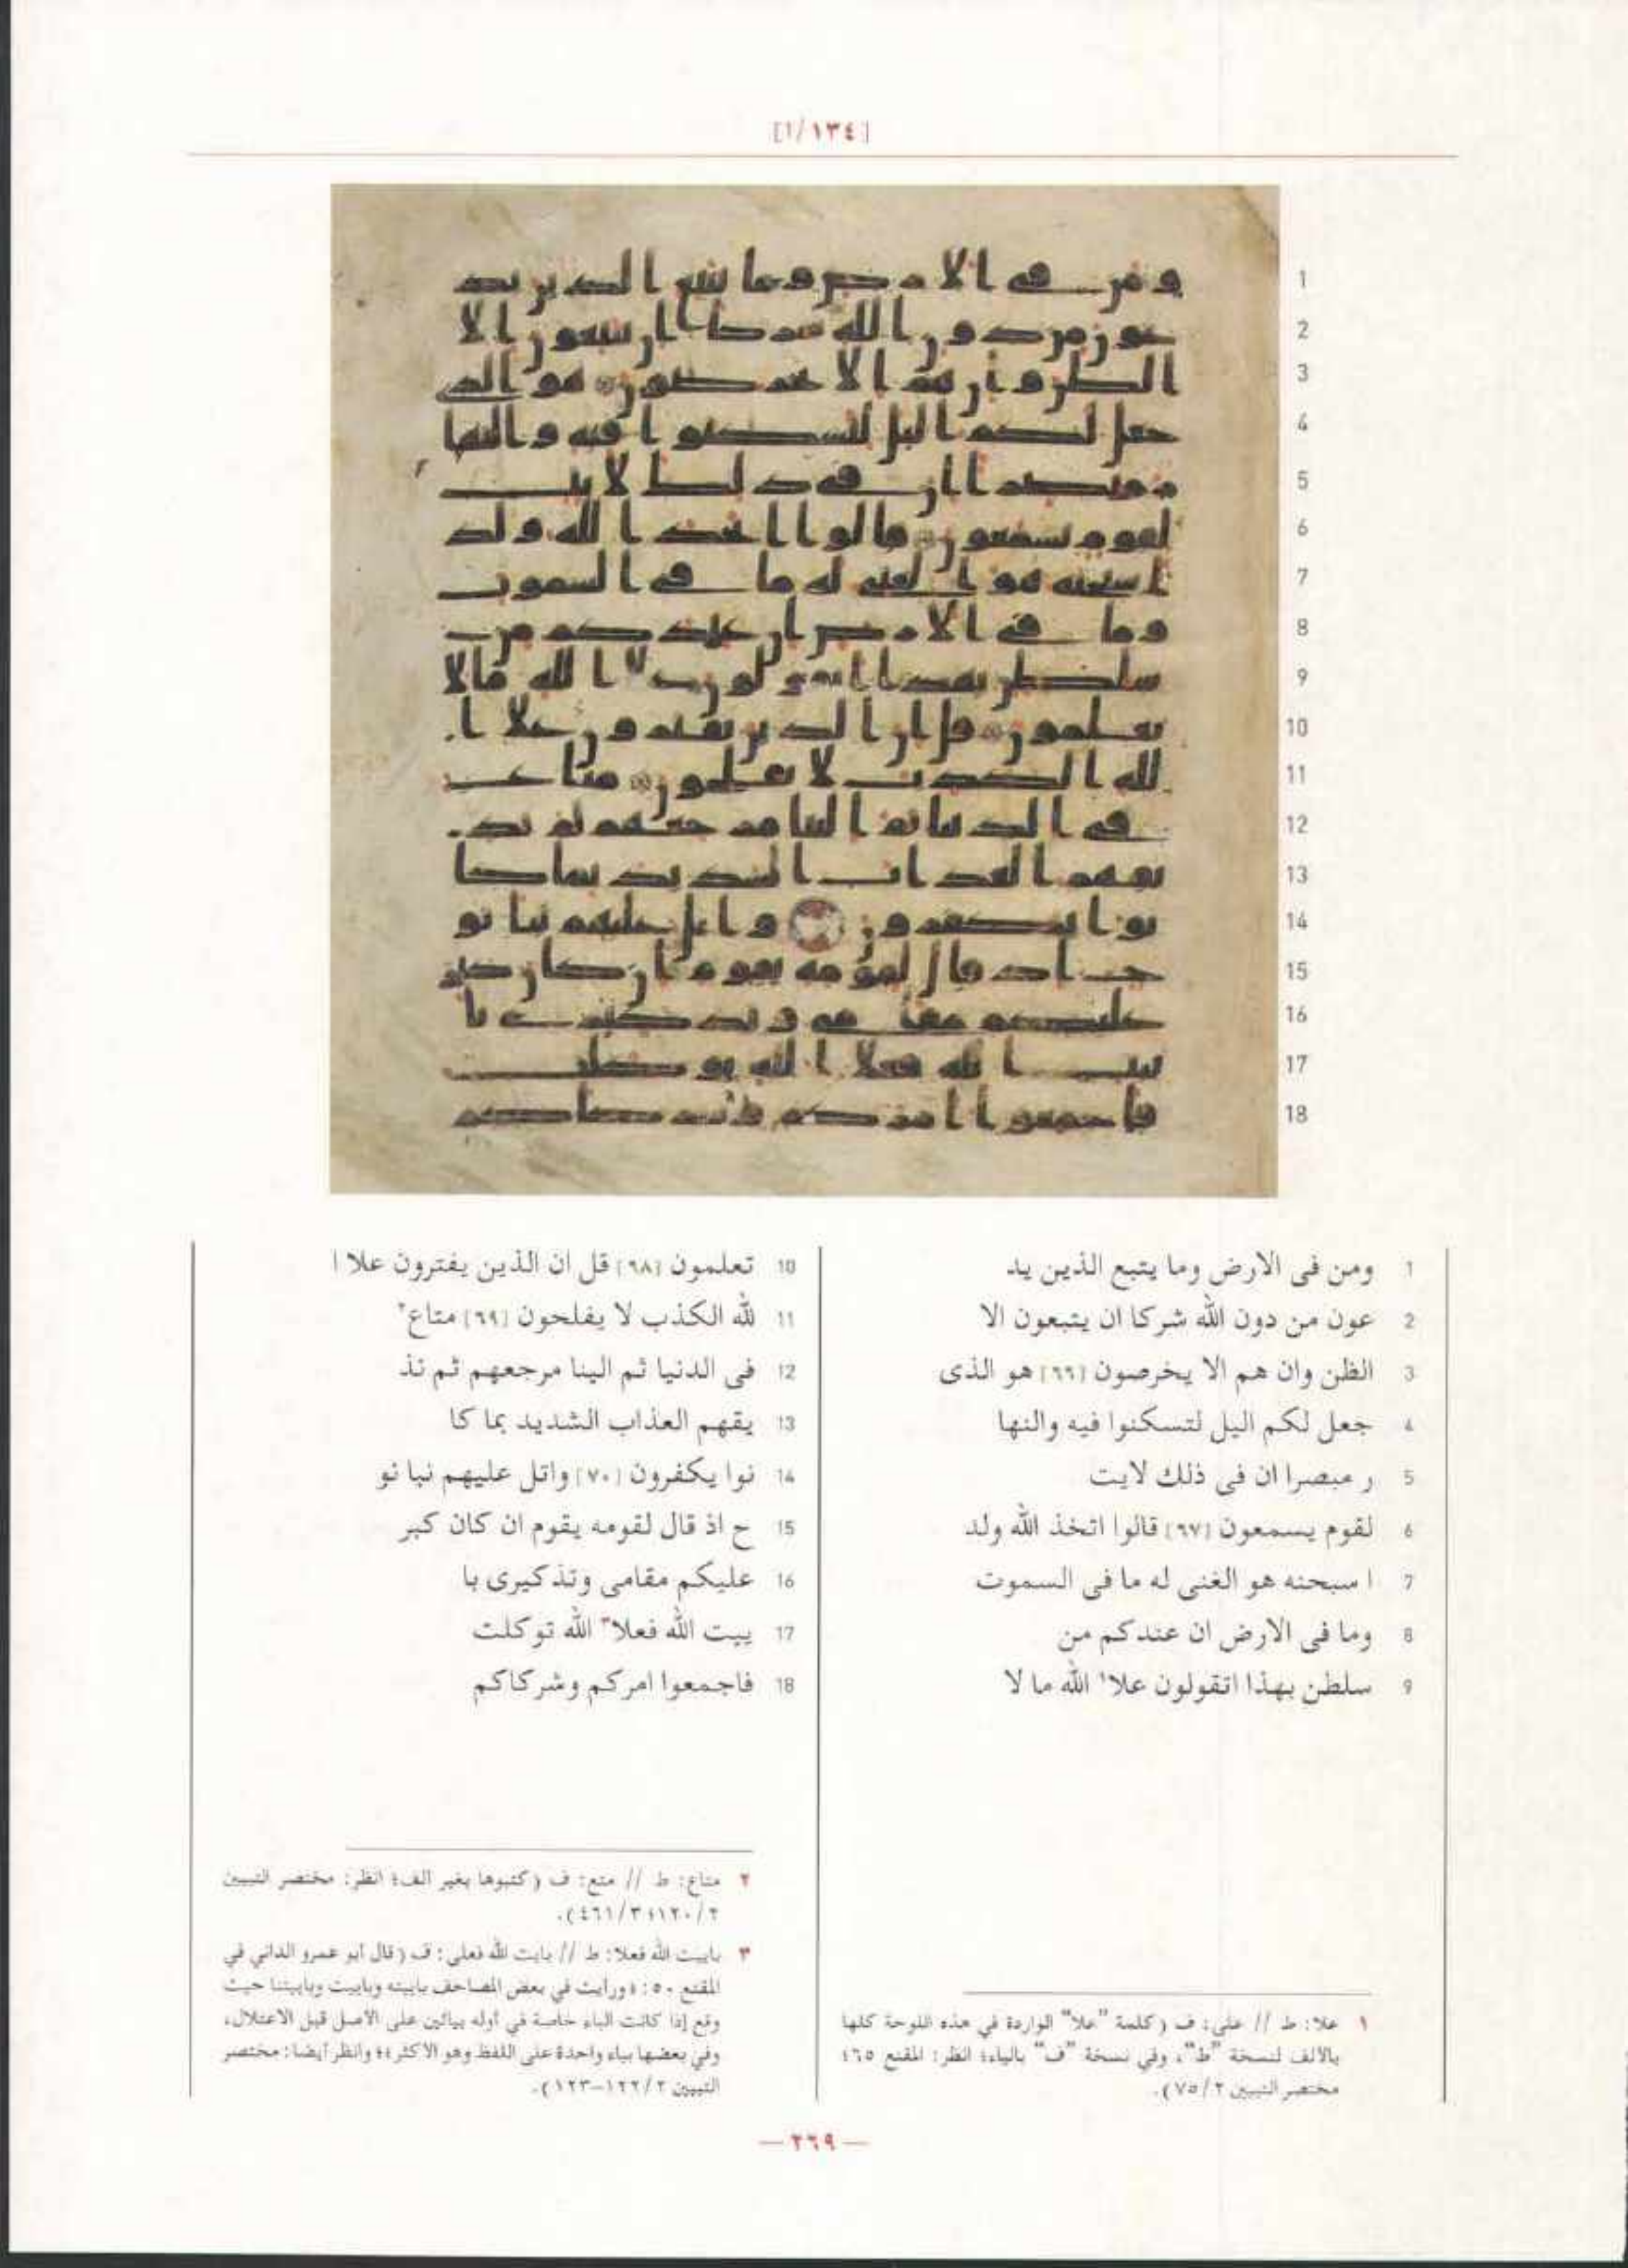 [١/١٣٤]
1 ومن فى الارض وما يتبع الذين يد
2 عون من دون الله شركا ان يتبعون الا
3 الظن وان هم الا يخرصون [٦٦] هو الذى
4 جعل لكم اليل لتسكنوا فيه والنها
5 ر مبصرا ان فى ذلك لايت
6 لقوم يسمعون [٦٧] قالوا اتخذ الله ولد
7 ا سبحنه هو الغنى له ما فى السموت
8 وما فى الارض ان عندكم من
9 سلطن بهذا اتقولون علا١ الله ما لا
10 تعلمون [٦٨] قل ان الذين يفترون علا ا
11 لله الكذب لا يفلحون [٦٩] متاع٢
12 فى الدنيا ثم الينا مرجعهم ثم نذ
13 يقهم العذاب الشديد بما كا
14 نوا يكفرون [٧٠] واتل عليهم نبا نو
15 ح اذ قال لقومه يقوم ان كان كبر
16 عليكم مقامى وتذكيرى با
17 ييت الله فعلا٣ الله توكلت
18 فاجمعوا امركم وشركاكم
١ علا: ط // على: ف (كلمة "علا" الواردة في هذه اللوحة كلها
بالالف لنسخة "ط"، وفي نسخة "ف" بالياء؛ انظر: المقنع ٦٥؛
مختصر التبيين ٧٥/٢).
٢ متاع: ط // متع: ف (كتبوها بغير الف؛ انظر: مختصر التبيين
٢/١٢٠؛ ٤٦١/٣).
٣ باييت الله فعلا: ط // بايت الله فعلى: ف (قال أبو عمرو الداني في
المقنع ٥٠: «ورأيت في بعض المصاحف باييته وباييت وباييتنا حيث
وقع إذا كانت الباء خاصة في أوله بيائين على الأصل قبل الاعتلال،
وفي بعضها بياء واحدة على اللفظ وهو الأكثر»؛ وانظر أيضا: مختصر
التبيين ١٢٢/٢-١٢٣).
— ٢٦٩ —